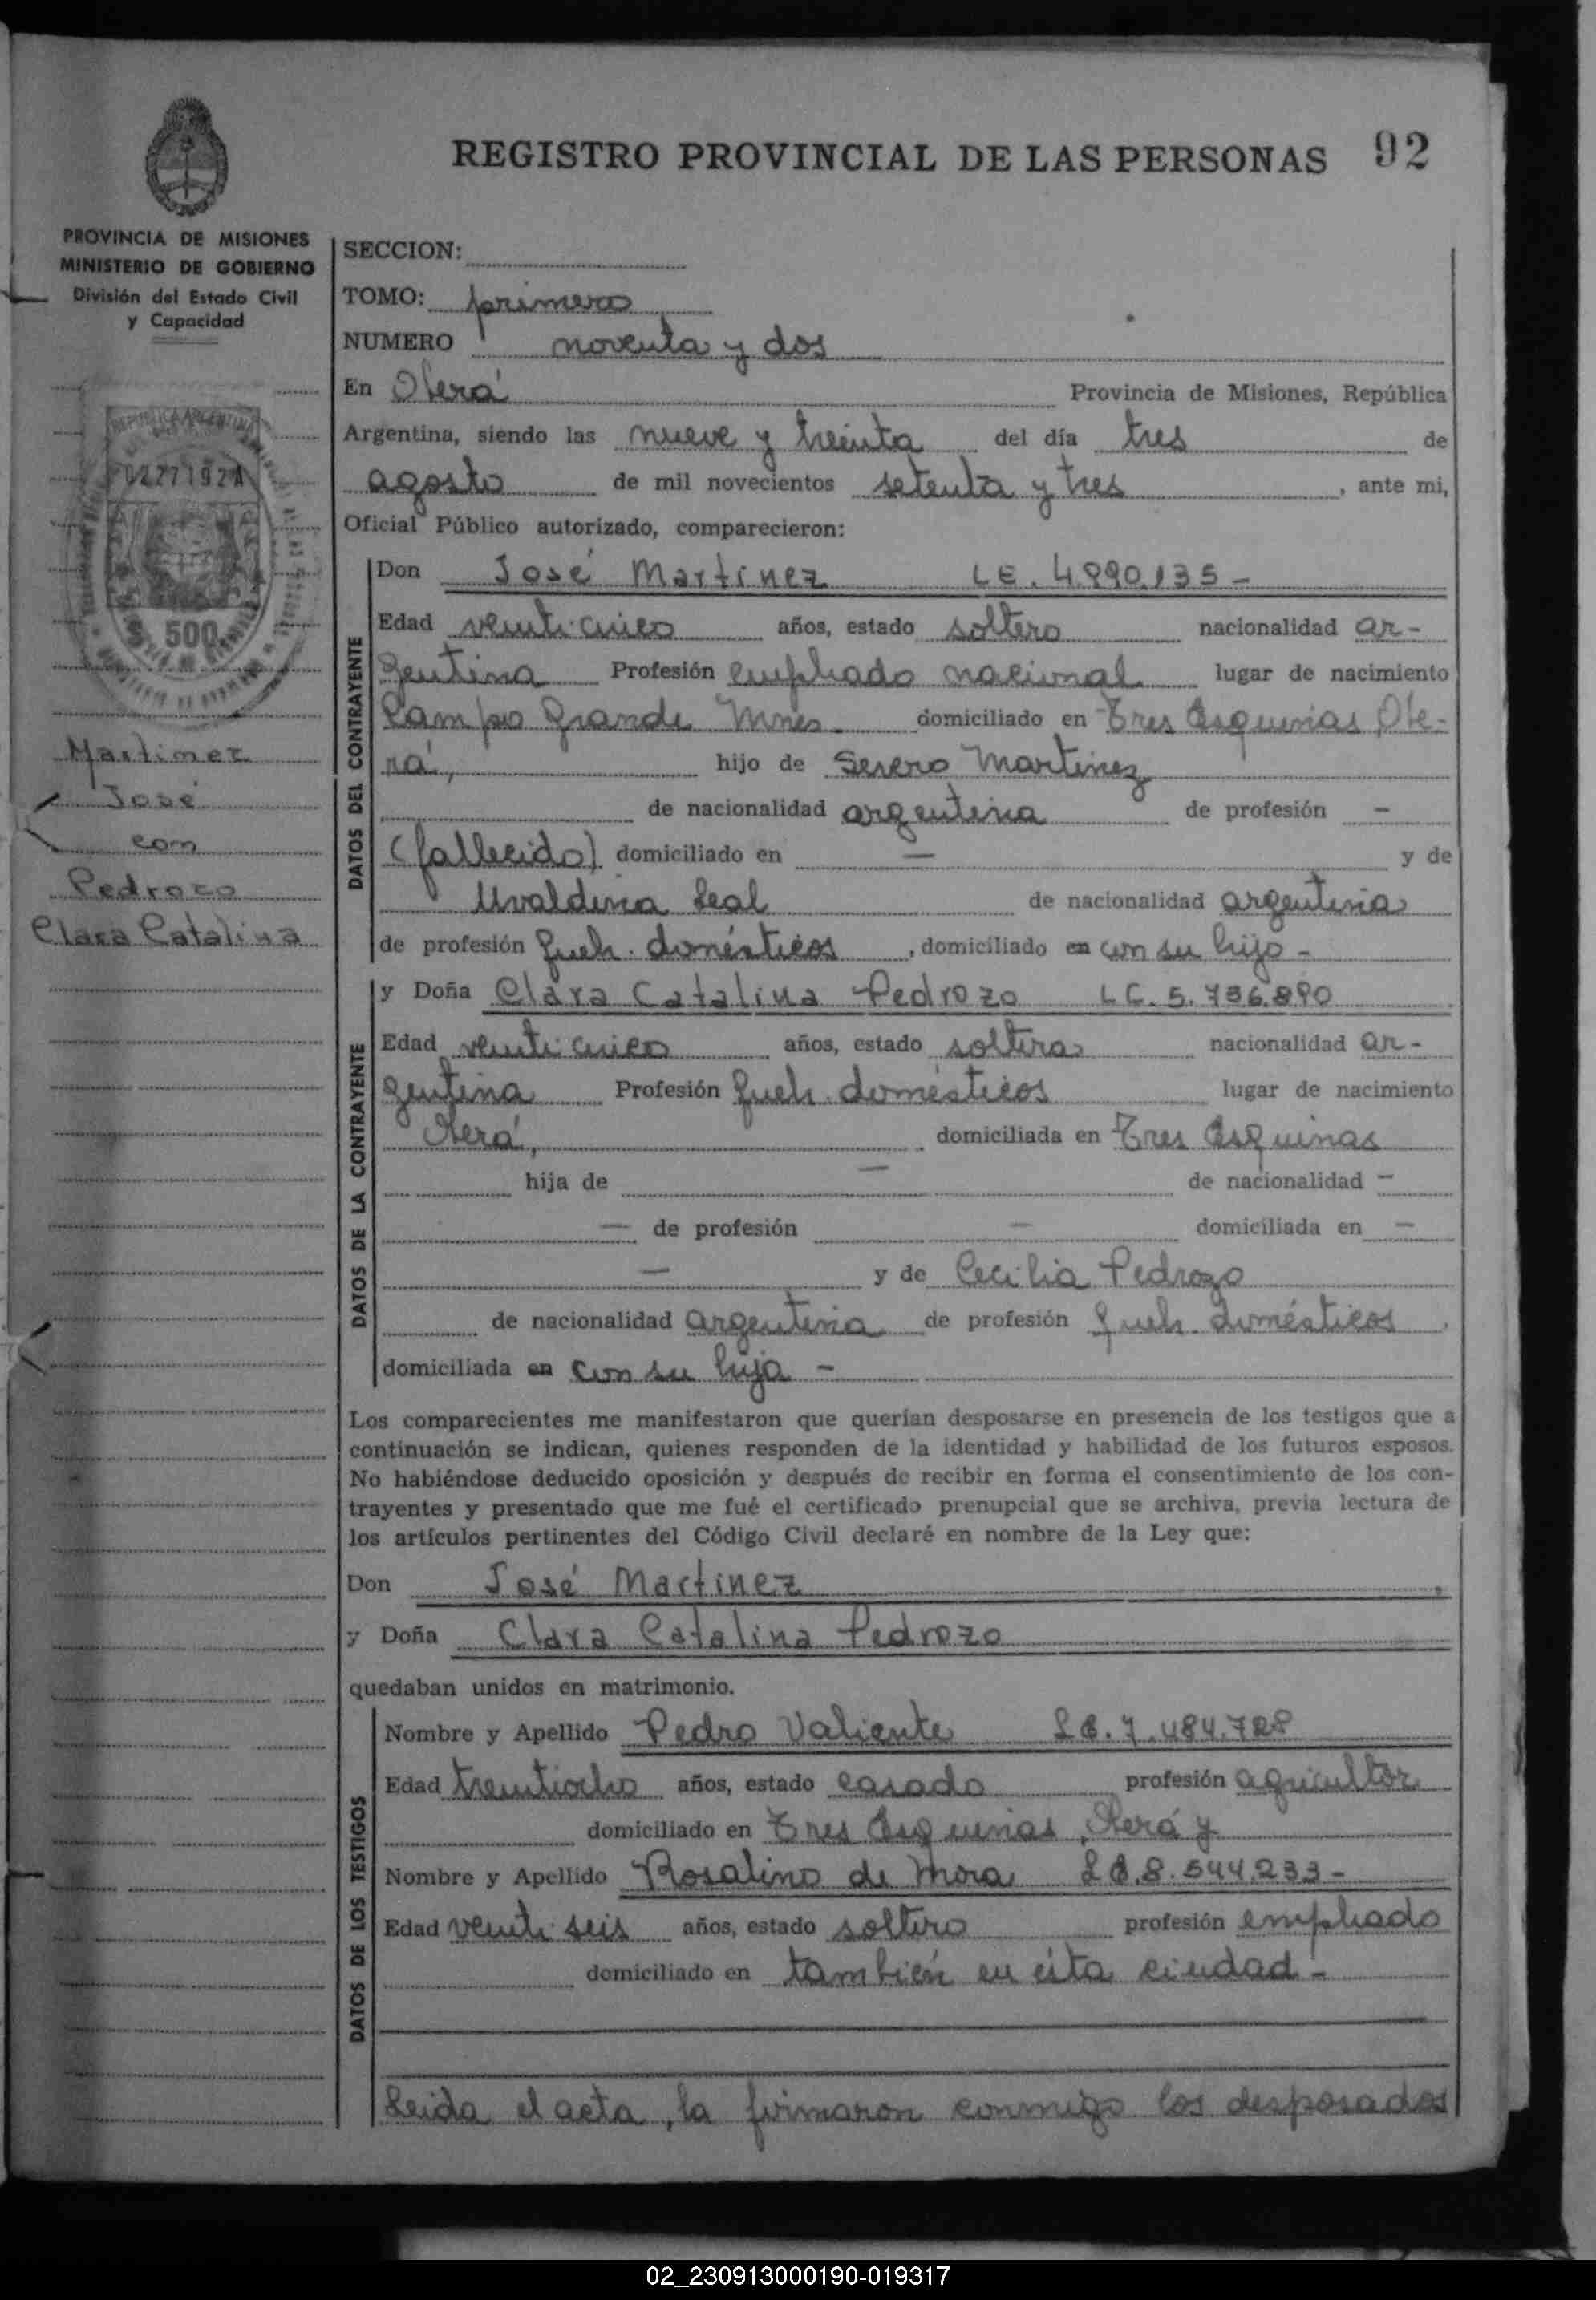 REGISTRO PROVINCIAL DE LAS PERSONAS 92
PROVINCIA DE MISIONES
MINISTERIO DE GOBIERNO
División del Estado Civil
y Capacidad
REPUBLICA ARGENTINA
02771924
$ 500
Martinez
José
con
Pedrozo
Clara Catalina
SECCION:
TOMO: primero
NUMERO noventa y dos
En Oberá Provincia de Misiones, República
Argentina, siendo las nueve y treinta del día tres de
agosto de mil novecientos setenta y tres, ante mi,
Oficial Público autorizado, comparecieron:
DATOS DEL CONTRAYENTE
Don José Martínez LE. 4.990.135-
Edad veinti cinco años, estado soltero nacionalidad ar-
gentina Profesión empleado nacional lugar de nacimiento
Campo Grande Mnes. domiciliado en Tres Esquinas, Obe-
rá, hijo de Severo Martinez
de nacionalidad argentina de profesión -
(fallecido) domiciliado en — y de
Uvaldina Leal de nacionalidad argentina
de profesión queh. domésticos, domiciliado en con su hijo-
DATOS DE LA CONTRAYENTE
y Doña Clara Catalina Pedrozo LC. 5.736.890
Edad veinti cinco años, estado soltera nacionalidad ar-
gentina Profesión queh. domésticos lugar de nacimiento
Oberá, domiciliada en Tres Esquinas
hija de — de nacionalidad -
— de profesión — domiciliada en —
— y de Cecilia Pedrozo
de nacionalidad argentina de profesión queh. domésticos,
domiciliada en con su hija -
Los comparecientes me manifestaron que querían desposarse en presencia de los testigos que a
continuación se indican, quienes responden de la identidad y habilidad de los futuros esposos.
No habiéndose deducido oposición y después de recibir en forma el consentimiento de los con-
trayentes y presentado que me fué el certificado prenupcial que se archiva, previa lectura de
los artículos pertinentes del Código Civil declaré en nombre de la Ley que:
Don José Martínez,
y Doña Clara Catalina Pedrozo
quedaban unidos en matrimonio.
DATOS DE LOS TESTIGOS
Nombre y Apellido Pedro Valiente LE. 7.484.728
Edad treintiocho años, estado casado profesión agricultor
domiciliado en Tres Esquinas, Oberá y
Nombre y Apellido Rosalino de Mora LE. 8.544.233-
Edad veinti seis años, estado soltero profesión empleado
domiciliado en también en ésta ciudad-
Leida el acta, la firmaron conmigo los desposados
02_230913000190-019317